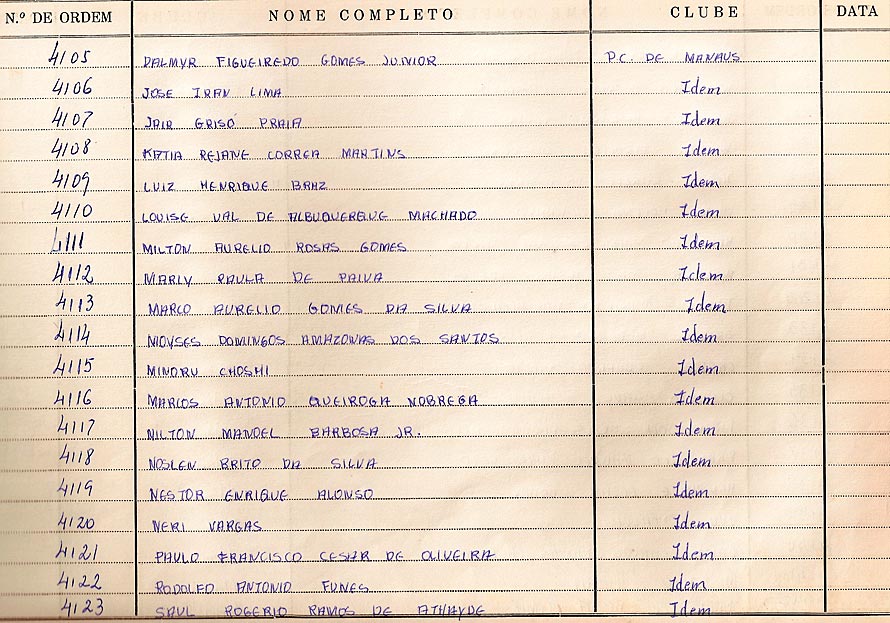 N.º DE ORDEM NOME COMPLETO CLUBE DATA
4105 DALMYR FIGUEIREDO GOMES JUNIOR P.C. DE MANAUS
4106 JOSE IRAN LIMA Idem
4107 JAIR GRISÓ PRAIA Idem
4108 KATIA REJANE CORREA MARTINS Idem
4109 LUIZ HENRIQUE BRAZ Idem
4110 LOUISE VAL DE ALBUQUERQUE MACHADO Idem
4111 MILTON AURELIO ROSAS GOMES Idem
4112 MARLY PAULA DE PAIVA Idem
4113 MARCO AURELIO GOMES DA SILVA Idem
4114 MOYSES DOMINGOS AMAZONAS DOS SANTOS Idem
4115 MINORU CHOSHI Idem
4116 MARCOS ANTONIO QUEIROGA NOBREGA Idem
4117 NILTON MANOEL BARBOSA JR. Idem
4118 NOSLEN BRITO DA SILVA Idem
4119 NESTOR ENRIQUE ALONSO Idem
4120 NERI VARGAS Idem
4121 PAULO FRANCISCO CESAR DE OLIVEIRA Idem
4122 RODOLFO ANTONIO FUNES Idem
4123 SAUL ROGERIO RAMOS DE ATHAYDE Idem